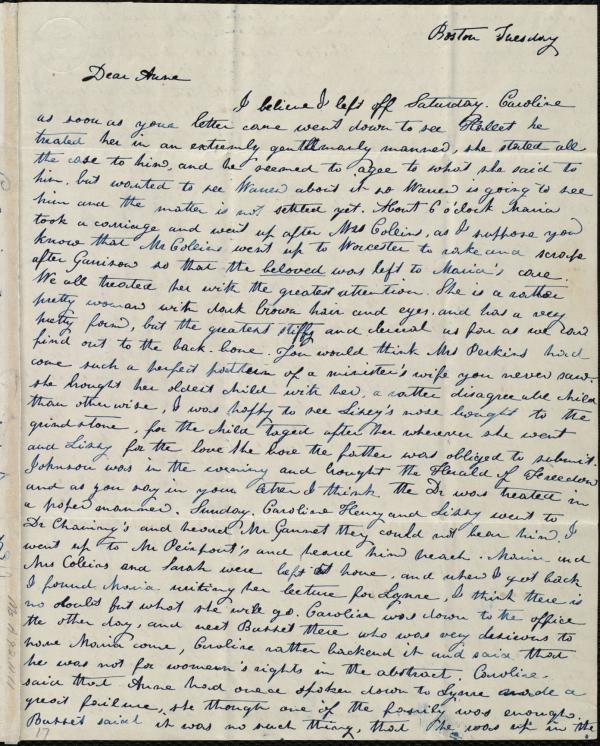 Boston Tuesday
Dear Anne
I believe I left off Saturday. Caroline
as soon as your letter came went down to see Hallett he
treated her in an extremly gentlemanly manner, she stated all
the case to him, and he seemed to agee to what she said to
him, but wanted to see about it so is going to see
him and the matter is not settled yet. About 6 o'clock Maria
took a carriage and went up after Mrs Collins, as I suppose you
know that Mr Collins went up to Worcester to rake and scrape
after Garrison so that the beloved was left to Maria's care.
We all treated her with the greatest attention. She is a rather
pretty woman with dark brown hair and eyes, and has a very
pretty form, but the greatest and as far as we can
find out to the back bone. You would think Mrs Perkins had
come such a perfect pattern of a minister's wife you never saw.
she brought her oldest child with her, a rather disagreeable child
than otherwise, I was happy to see Lissy's nose brought to the
grindstone, for the child taged after her wherever she went
and Lissy for the love she bore the father was obliged to submit.
Johnson was in the evening and brought the Herald of Freedom
and as you say in your letter I think the Dr was treated in
a proper manner. Sunday. Caroline Henry and Lissy went to
Dr Channing's and heard Mr Gannet they could not bear him. I
went up to Mr Peirpont's and heard him preach. Maria and
Mrs Collins and Sarah were left at home, and when I got back
I found Maria writing her lecture for Lynne, I think there is
no doubt but what she will go. Caroline was down to the office
the other day, and met Buffet there who was very desirous to
have Maria come, Caroline rather backend it and said that
he was not for womann's rights in the abstract. Caroline
said that Anne had once spoken down to Lynne made a
great failure, she though one of the family was enough.
said it was no such thing, that she was up in the
17